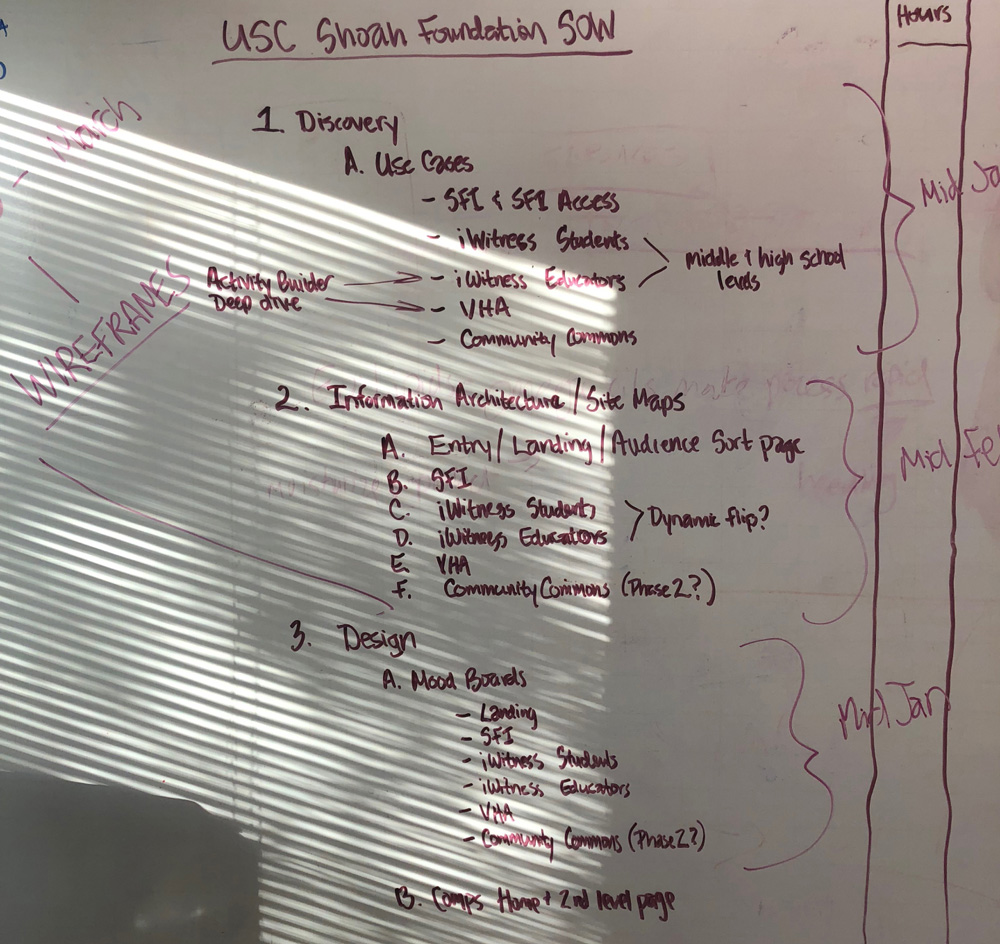 USC Shoah Foundation SOW
Hours
March
1. Discovery
A. Use Cases
- SFI & SFI Access
Mid Ja
- iWitness Students
middle & high school
levels
Activity Builder
- iWitness Educators
Deep dive
- VHA
- Community Commons
WIREFRAMES
2. Information Architecture / Site Maps
A. Entry / Landing / Audience Sort page
Mid Fe
B. SFI
C. iWitness Students
Dynamic flip?
D. iWitness Educators
E. VHA
F. Community Commons (Phase 2?)
3. Design
A. Mood Boards
- Landing
Mid Jan
- SFI
- iWitness Students
- iWitness Educators
- VHA
- Community Commons (Phase 2?)
B. Comps Home + 2nd level page